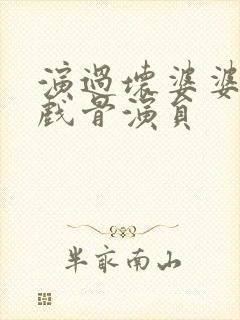 演過壞婆婆
戲骨演員
半畝南山